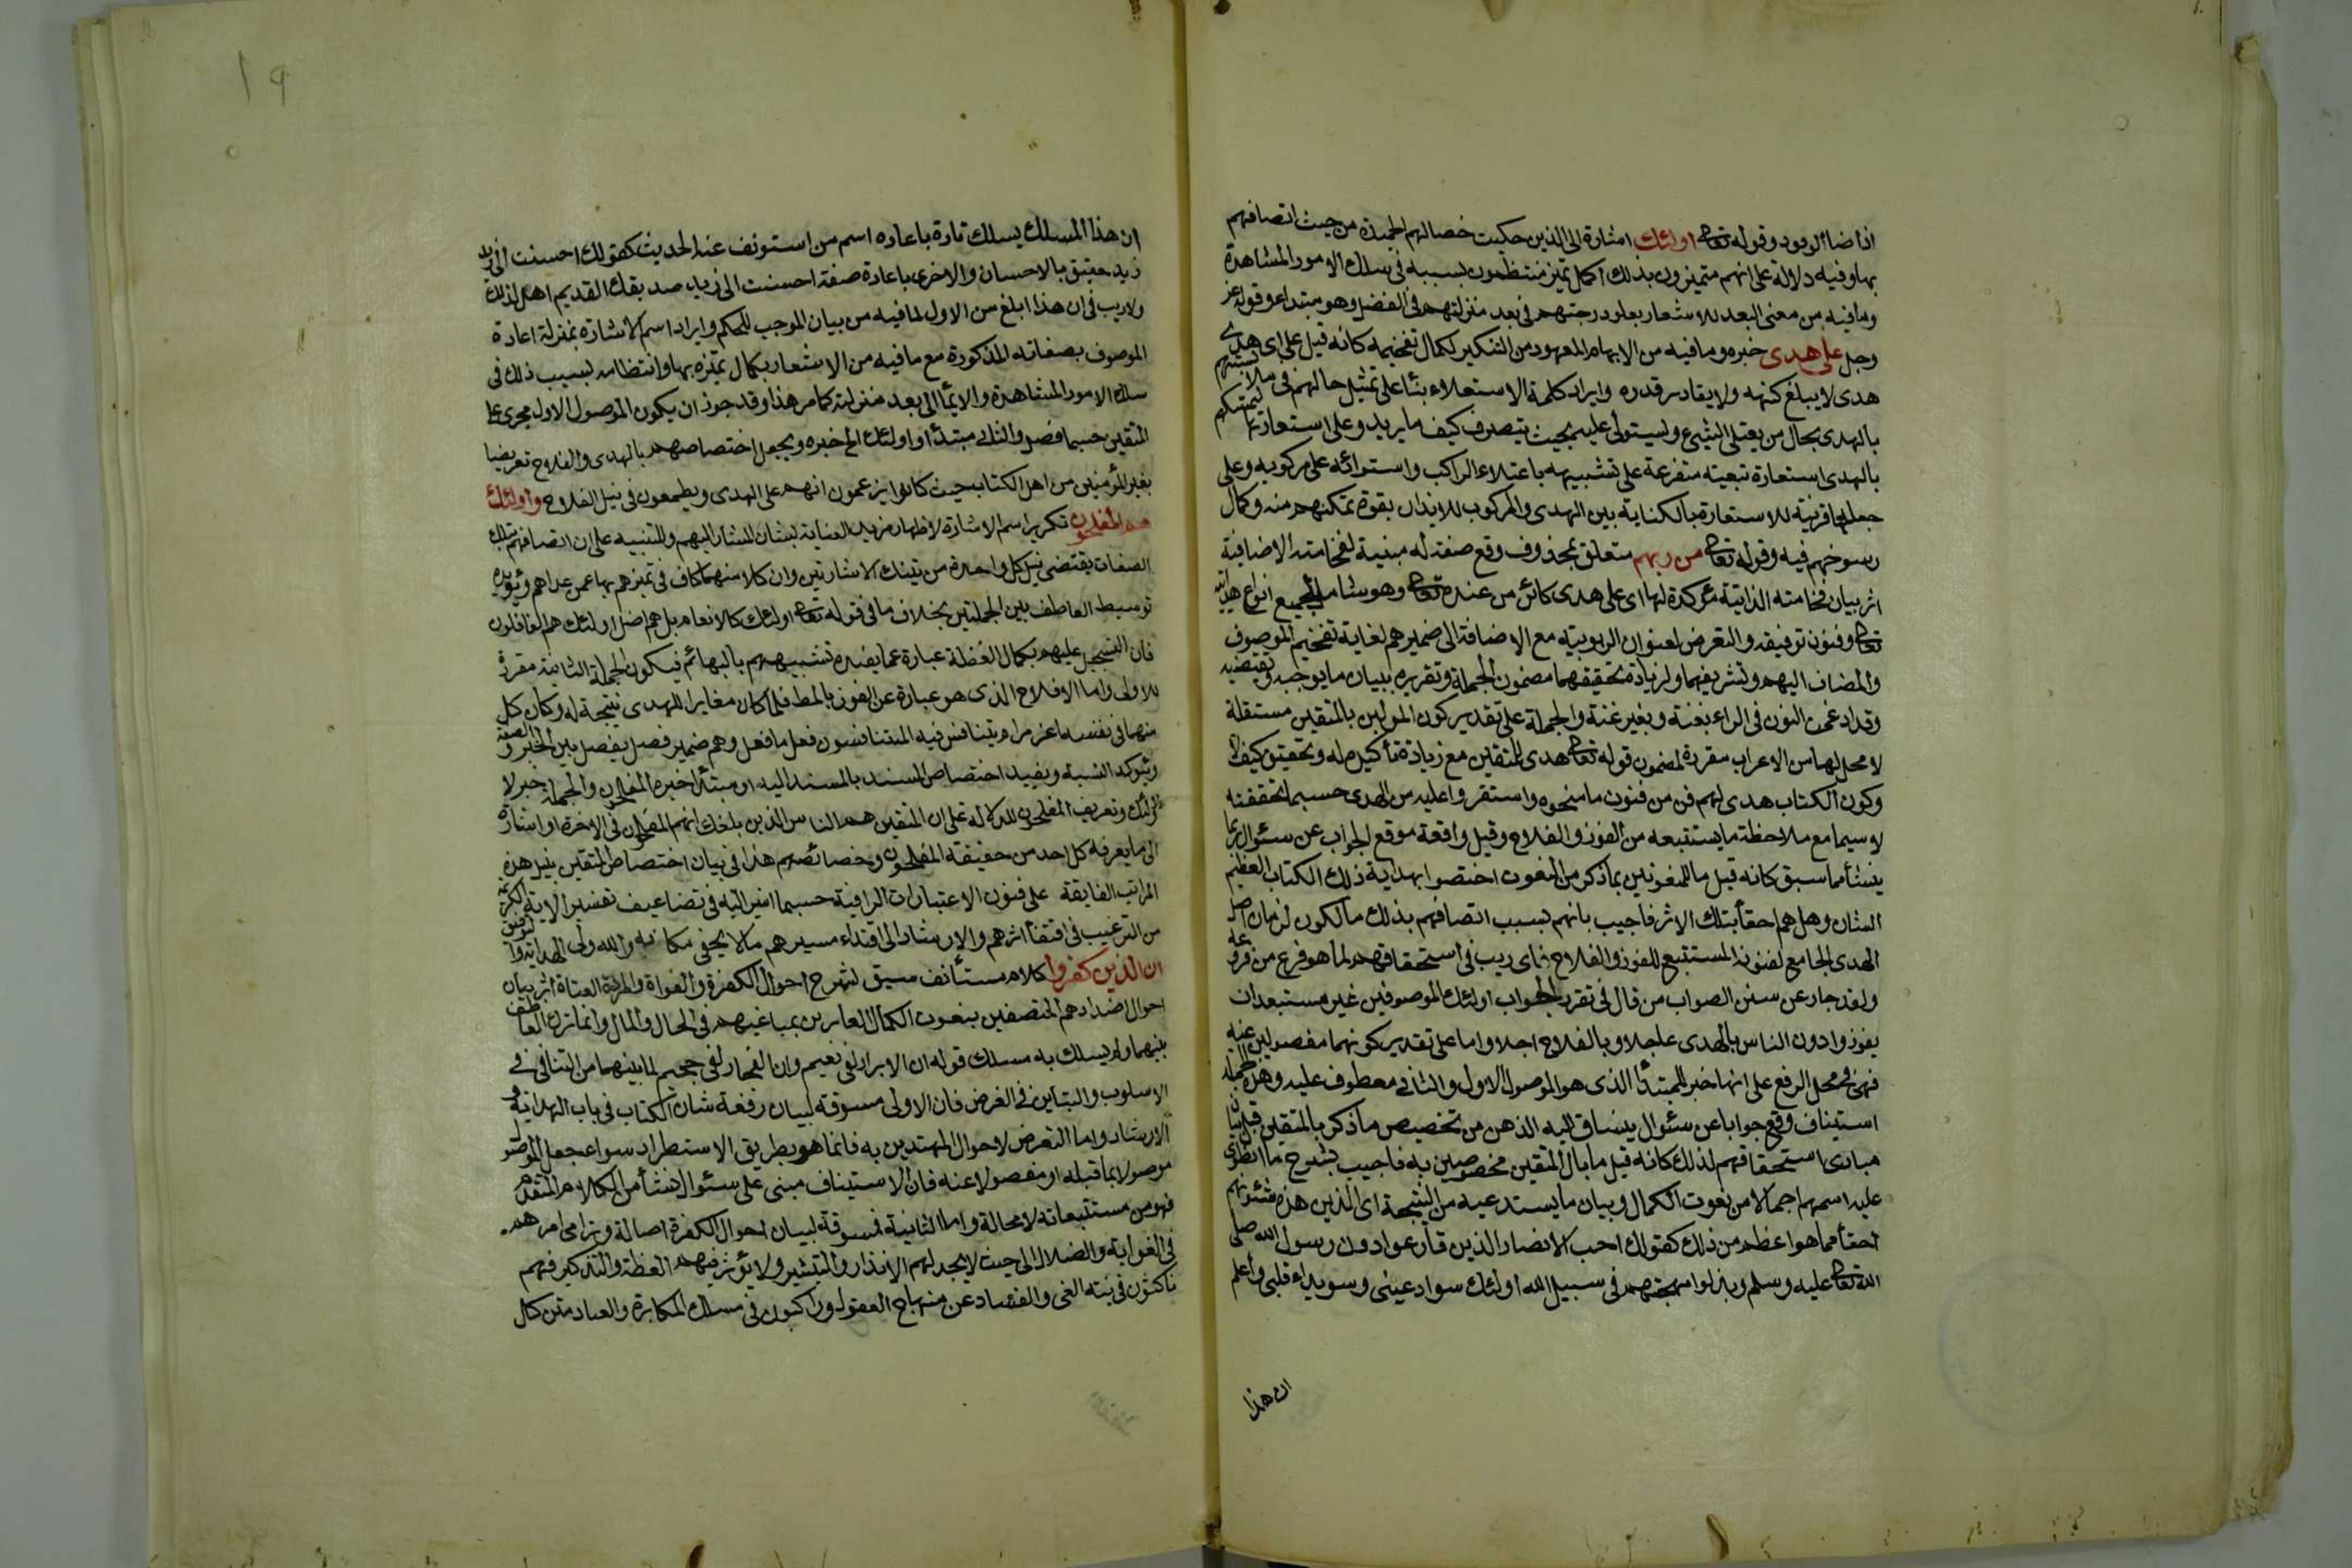 اضاء الوقود وقوله تعالى اولئك اشارة الى الذين حكيت خصالهم الحميدة من حيث اتصافهم
بها وفيه دلالة على انهم متميزون بذلك اكمل تميز منتظمون بسببه في سلك الامور المشاهدة
وما فيه من معنى البعد للاشعار بعلو درجتهم في بعد منزلتهم في الفضل وهو مبتدأ وقوله عز
وجل على هدى خبره وما فيه من الابهام المعهود من التنكير لكمال تفخيمه كانه قيل على اى هدى
هدى لا يبلغ كنهه ولا يقادر قدره وايراد كلمة الاستعلاء بناً على تمثيل حالهم في ملابستهم
بالهدى بحال من يعتلى الشيء ويستولى عليه بحيث يتصرف كيف ما يريد وعلى استعارتها لتمسكهم
بالهدى استعارة تبعية متفرعة على تشبيهه باعتلاء الراكب واستوائه على مركوبه وعلى
جعلها قرينة للاستعارة بالكناية بين الهدى والمركوب للايذان بقوة تمكنهم منه وكمال
رسوخهم فيه وقوله تعالى من ربهم متعلق بمحذوف وقع صفة له مبنية لفخامته الاضافية
اثر بيان فخامته الذاتية مؤكدة لها اى على هدى كائن من عنده تعالى وهو شامل لجميع انواع هدايته
تعالى وفنون توفيقه والتعرض لعنوان الربوبية مع الاضافة الى ضميرهم لغاية تفخيم الموصوف
والمضاف اليهم وتشريفهما ولزيادة تحقيقهما مضمون الجملة وتقريره ببيان ما يوجبه ويقتضيه
وقد ادغمت النون في الراء بغنة وبغير غنة والجملة على تقدير كون الموليين بالمتقين مستقلة
لا محل لها من الاعراب مقررة لمضمون قوله تعالى هدى للمتقين مع زيادة تأكيد له وتحقيق كيف لا
وكون الكتاب هدى لهم فن من فنون ما منحوه واستقروا عليه من الهدى حسبما تحققته
لا سيما مع ملاحظة ما يستتبعه من الفوز والفلاح وقيل واقعة موقع الجواب عن سئوال ربما
ينشأ مما سبق كانه قيل ما للمنعوتين بما ذكر من النعوت اختصوا بهداية ذلك الكتاب العظيم
الشان وهل هم احقا بتلك الاثر فاجيب بانهم بسبب اتصافهم بذلك مالكون لزمان اصل
الهدى الجامع لفنونه المستتبع للفوز والفلاح فاى ريب في استحقاقهم لما هو فرع من فروعه
ولقد جار عن سنن الصواب من قال في تقرير الجواب اولئك الموصوفين غير مستبعد ان
يفوزوا دون الناس بالهدى عاجلا وبالفلاح اجلا واما على تقدير كونهما مفصولين عنه
فهى في محل الرفع على انها خبر للمبتدأ الذى هو الموصول الاول والثانى معطوف عليه وهذه الجملة
استيناف وقع جوابا عن سئوال ينساق اليه الذهن من تخصيص ما ذكر بالمتقين قبل بيان
مبادى استحقاقهم لذلك كانه قيل ما بال المتقين مخصوصين به فاجيب بشرح ما انطوى
عليه اسمهم اجمالا من نعوت الكمال وبيان ما يستدعيه من النتيجة اى الذين هذه شئونهم
احقأ مما هو اعظم من ذلك كقولك احب الانصار الذين قارعوا دون رسول الله صلى
الله تعالى عليه وسلم وبذلوا مهجتهم في سبيل الله اولئك سواد عينى وسويداء قلبى واعلم
ان هذا
١٩
ان هذا المسلك يسلك تارة باعاده اسم من استونف عنه الحديث كقولك احسنت الى زيد
زيد حقيق بالاحسان والاخرى باعادة صفته احسنت الى زيد صديقك القديم اهل لذلك
ولا ريب في ان هذا ابلغ من الاول لما فيه من بيان الموجب للحكم وايراد اسم الاشارة بمنزلة اعادة
الموصوف بصفاته المذكورة مع ما فيه من الاشعار بكمال تميزه بها وانتظامه بسبب ذلك في
سلك الامور المشاهدة والايماً الى بعد منزلته كما مر هذا وقد جوز ان يكون الموصول الاول مجرى على
المتقين حسبما فصل والثانى مبتدأ و اولئك الخ خبره ويجعل اختصاصهم بالهدى والفلاح تعريضا
بغير المؤمنين من اهل الكتاب حيث كانوا يزعمون انهم على الهدى ويطمعون في نيل الفلاح واولئك
هم المفلحون تكرير اسم الاشارة لاظهار مزيد العناية بشان المشار اليهم وللتنبيه على ان اتصافهم بتلك
الصفات يقتضى نيل كل واحدة من تينك الاشارتين وان كلا منهما كاف في تميزهم بها عمن عداهم ويؤيده
توسيط العاطف بين الجملتين بخلاف ما في قوله تعالى اولئك كالانعام بل هم اضل اولئك هم الغافلون
فان التسجيل عليهم بكمال الغفلة عبارة عما يفيده تشبيههم بالبهائم فيكون الجملة الثانية مقررة
للاولى واما الافلاح الذى هو عبارة عن الفوز بالمط فلما كان مغايرا للهدى نتيجة له وكان كل
منهما في نفسه اعز مرام يتنافس فيه المتنافسون فعل ما فعل وهم ضمير فصل يفصل بين الخبر والصفة
ويؤكد النسبة ويفيد اختصاص المسند بالمسند اليه او مبتدأ خبره المفلحون والجملة خبر لا
ولئك وتعريف المفلحون للدلالة على ان المتقين هم الناس الذين بلغك انهم المفلحون في الاخرة او اشارة
الى ما يعرفه كل احد من حقيقة المفلحون وخصائصهم هذا في بيان اختصاص المتقين بنيل هذه
المراتب الفايقة على فنون الاعتبارات الرافية حسبما اشير اليه في تضاعيف تفسير الاية الكريمة
من الترغيب في اقتفأ اثرهم والارشاد الى اقتداء مسيرهم ما لا يخفى مكانه والله ولى الهداية والتوفيق
ان الذين كفروا كلام مستأنف سيق لشرح احوال الكفرة والغواة والمردة العتاة اثر بيان
احوال اضدادهم المتصفين بنعوت الكمال الفايزين بمباغيهم في الحال والمال وانما ترك العاطف
بينهما ولم يسلك به مسلك قوله ان الابرار لفى نعيم وان الفجار لفى جحيم لما بينهما من التنافى في
الاسلوب والتباين في الغرض فان الاولى مسوقة لبيان رفعة شان الكتاب في باب الهداية و
الارشاد واما التعرض لاحوال المهتدين به فانما هو بطريق الاستطراد سواء جعل الموصول
موصولا بما قبله او مفصولا عنه فان الاستيناف مبنى على سئوال نشأ من الكلام المتقدم
فهو من مستتبعاته لا محالة واما الثانية فمسوقة لبيان احوال الكفرة اصالة وترامى امرهم
في الغواية والضلال الى حيث لا يجديهم الانذار والتبشير ولا يؤثر فيهم العظة والتذكير فهم
ناكثون في تيه الغى والفساد عن منهاج العقول وراكبون في مسلك المكابرة والعناد متن كال